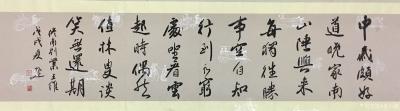 中歲頗好
道晚家南
山陲興來
每獨往勝
事空自知
行到水窮
處坐看雲
起時偶然
值林叟談
笑無還期
終南別業王維
戊戌夏